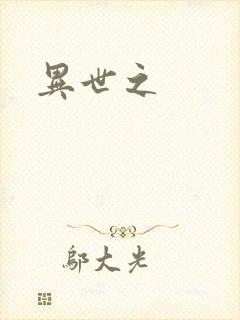 異世之
鄔大光